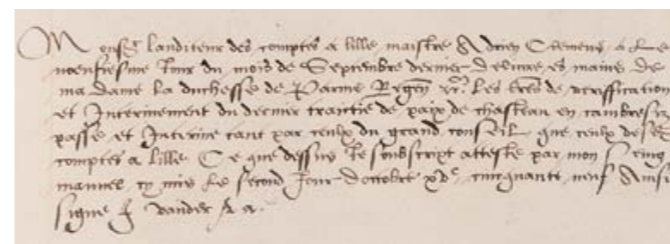 Monsr lauditeur des comptes a lille maistre Adrien Clemens a le
noeufiesme Jour du mois de Septembre dernier delivre es mains de
ma dame la duchesse de Parme Regen les lres de verification
et Interinement du dernier traictie de paix de chasteau en cambresiz
passe et Interine tant par ceulx du grand conseil que ceulx des
comptes a lille Ce que dessus Je soubscript atteste par mon seing
manuel cy mis le second Jour doctobre xvc cincquante neuf Ainsi
signe J vander